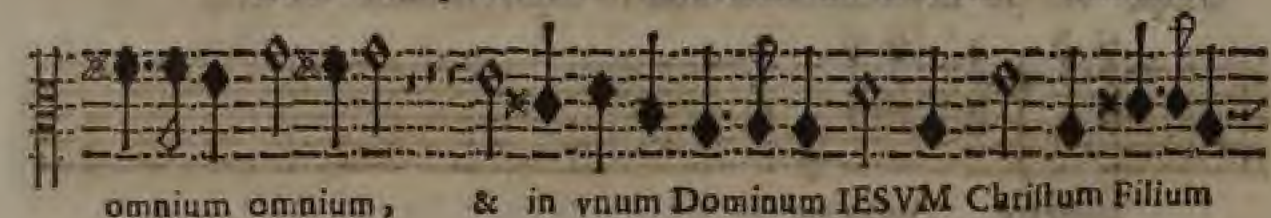 omnium omnium, & in vnum Dominum IESVM Christum Filium